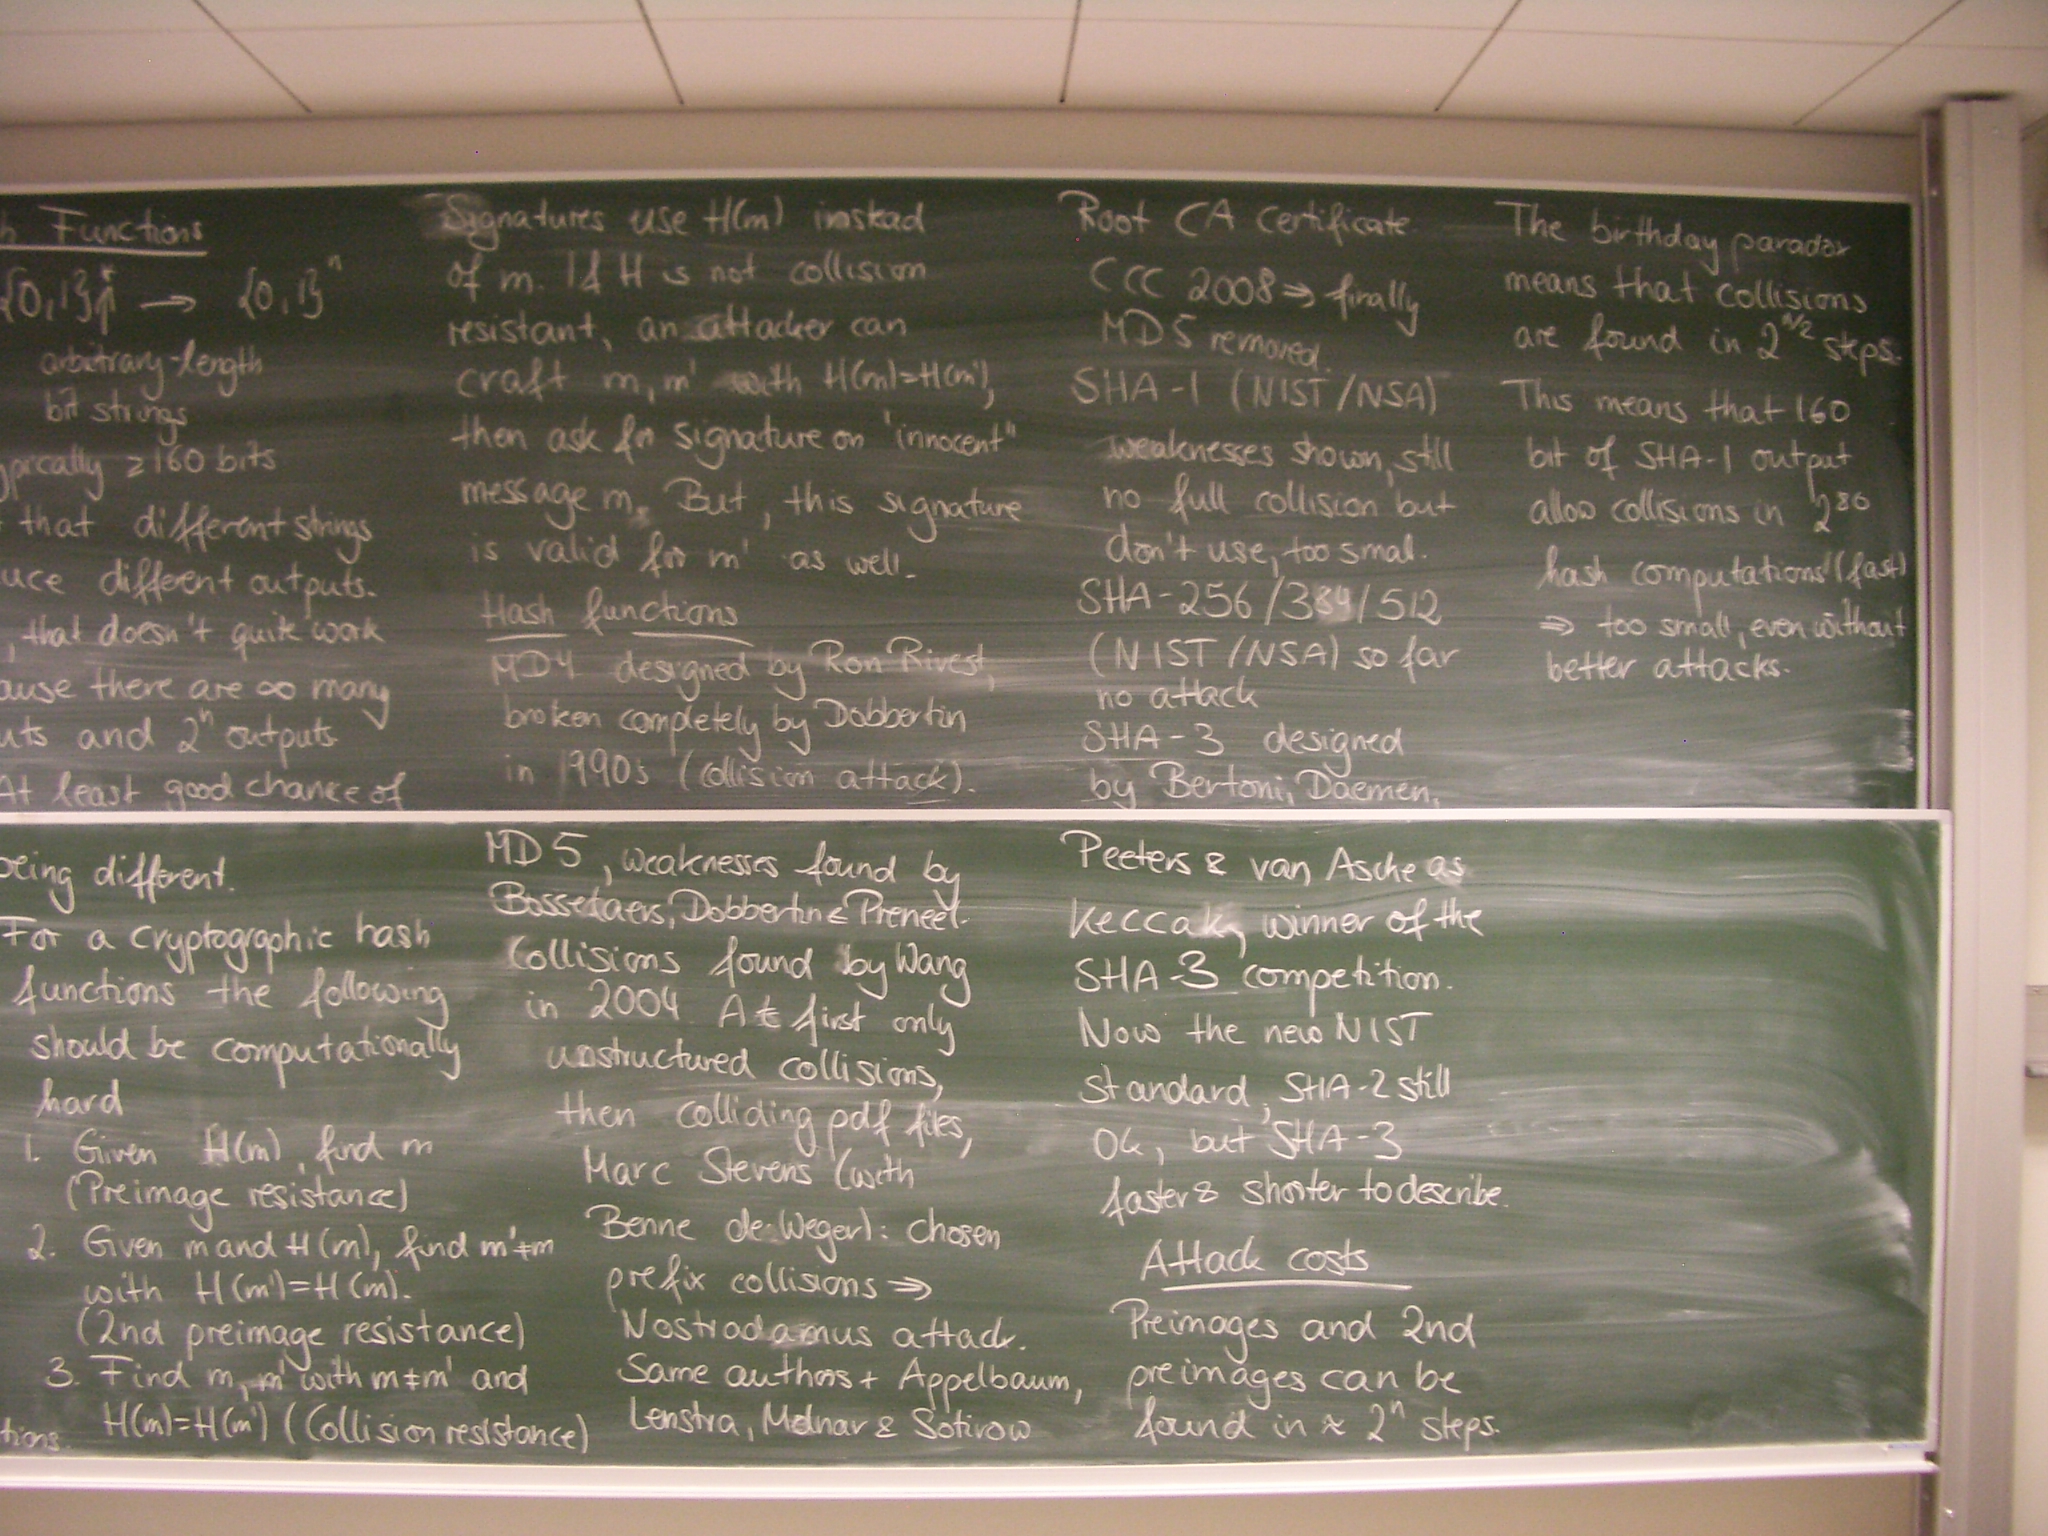 h Functions
{0,1}* → {0,1}ⁿ
↑
arbitrary-length
bit strings
ypically ≥160 bits
that different strings
uce different outputs.
, that doesn't quite work
ause there are ∞ many
uts and 2ⁿ outputs.
At least good chance of
being different.
For a cryptographic hash
functions the following
should be computationally
hard
1. Given H(m), find m
(Preimage resistance)
2. Given m and H(m), find m'≠m
with H(m')=H(m).
(2nd preimage resistance)
3. Find m, m' with m≠m' and
H(m)=H(m') (Collision resistance)
tions.
Signatures use H(m) instead
of m. If H is not collision
resistant, an attacker can
craft m, m' with H(m)=H(m'),
then ask for signature on "innocent"
message m. But, this signature
is valid for m' as well.
Hash functions
MD4 designed by Ron Rivest,
broken completely by Dobbertin
in 1990s (collision attack).
MD5, weaknesses found by
Bosselaers, Dobbertin & Preneel.
Collisions found by Wang
in 2004 At first only
unstructured collisions,
then colliding pdf files,
Marc Stevens (with
Benne de Weger): chosen
prefix collisions ⇒
Nostradamus attack.
Same authors + Appelbaum,
Lenstra, Molnar & Sotirow
Root CA certificate.
CCC 2008 ⇒ finally
MD5 removed.
SHA-1 (NIST/NSA)
weaknesses shown, still
no full collision but
don't use, too small.
SHA-256/384/512
(NIST/NSA) so far
no attack
SHA-3 designed
by Bertoni, Daemen,
Peeters & van Asche as
Keccak, winner of the
SHA-3 competition.
Now the new NIST
standard, SHA-2 still
ok, but SHA-3
faster & shorter to describe.
Attack costs
Preimages and 2nd
preimages can be
found in ≈ 2ⁿ steps.
The birthday paradox
means that collisions
are found in 2^n/2 steps.
This means that 160
bit of SHA-1 output
allow collisions in 2⁸⁰
hash computations (fast)
⇒ too small, even without
better attacks.